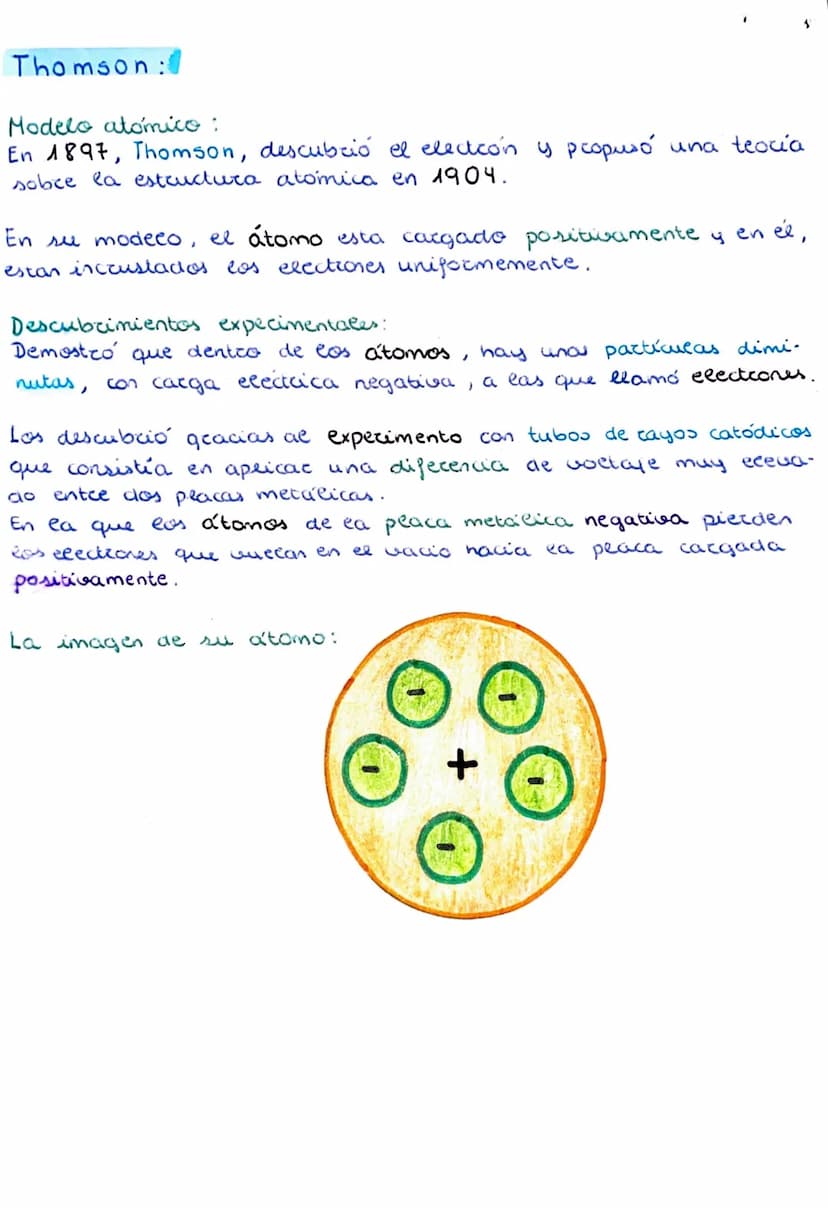 Thomson:
Modelo atómico:
En 1897, Thomson, descubrió el electrón y propusó una teoría
sobre la estructura atómica en 1904.
En su modelo, el átomo esta cargado positivamente y en él,
estan incrustados los electrones uniformemente.
Descubrimientos experimentales:
Demostró que dentro de los átomos, hay unas partículas dimi-
nutas, con carga eléctrica negativa, a las que llamó electrones.
Los descubrió gracias al experimento con tubos de rayos catódicos
que consistía en aplicar una diferencia de voltaje muy eleva-
do entre dos placas metálicas.
En la que los átomos de la placa metálica negativa pierden
los electrones que vuelan en el vacío hacia la placa cargada
positivamente.
La imagen de su átomo:
- -
- + -
-